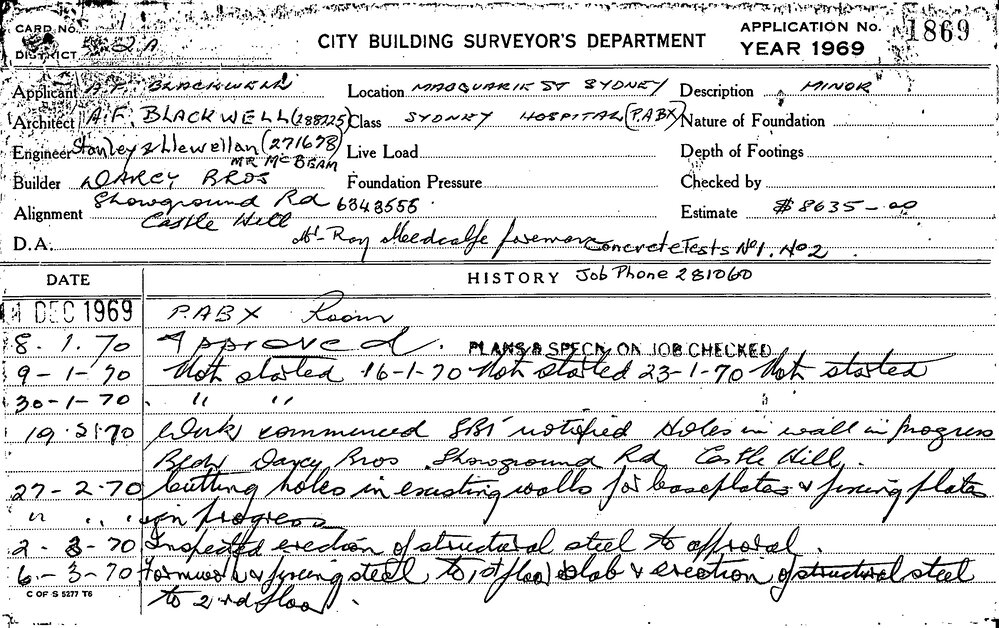 CARD No. 1
DISTRICT 2A
CITY BUILDING SURVEYOR'S DEPARTMENT
APPLICATION No. 1869
YEAR 1969
Applicant A.F. BLACKWELL Location MACQUARIE ST SYDNEY Description MINOR
Architect A.F. BLACKWELL (288725) Class SYDNEY HOSPITAL (PABX) Nature of Foundation
Engineer Stanley & Llewellan (271678) Live Load Depth of Footings
MR McBEAM
Builder DARCY BROS Foundation Pressure Checked by
Alignment Showground Rd 6343555 Estimate $8635-00
Castle Hill
D.A. Mr Ray Meedcalfe foreman Concrete Tests No1. No2
DATE HISTORY Job Phone 281060
DEC 1969 P.ABX Room
8. 1. 70 Approved. PLANS & SPECN. ON JOB CHECKED
9-1-70 Not started 16-1-70 Not started 23-1-70 Not started
30-1-70 " "
19.2.70 Work commenced SBS notified Holes in wall in progress
Bldr Darcy Bros Showground Rd Castle Hill.
27-2-70 Cutting holes in existing walls for baseplates & fixing plates
" " " in progress
2-3-70 Inspected erection of structural steel to approval.
6-3-70 Formwork & fixing steel to 1st floor slab & erection of structural steel
to 2nd floor.
C OF S 5277 T6